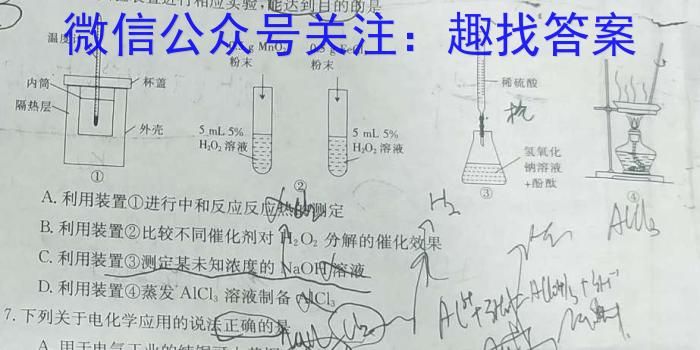 装置进行相应实验,能达到目的的是
微信公众号关注：趣找答案
温度
g MnO₂
粉末
粉末
内筒
杯盖
隔热层
外壳
5 mL 5%
H₂O₂ 溶液
5 mL 5%
H₂O₂ 溶液
稀硫酸
氢氧化
钠溶液
+酚酞
①
②
③
④
A. 利用装置①进行中和反应反应热的测定
B. 利用装置②比较不同催化剂对 H₂O₂ 分解的催化效果
C. 利用装置③测定某未知浓度的 NaOH 溶液
D. 利用装置④蒸发 AlCl₃ 溶液制备 AlCl₃
H₂
AlCl₃
7. 下列关于电化学应用的说法正确的是